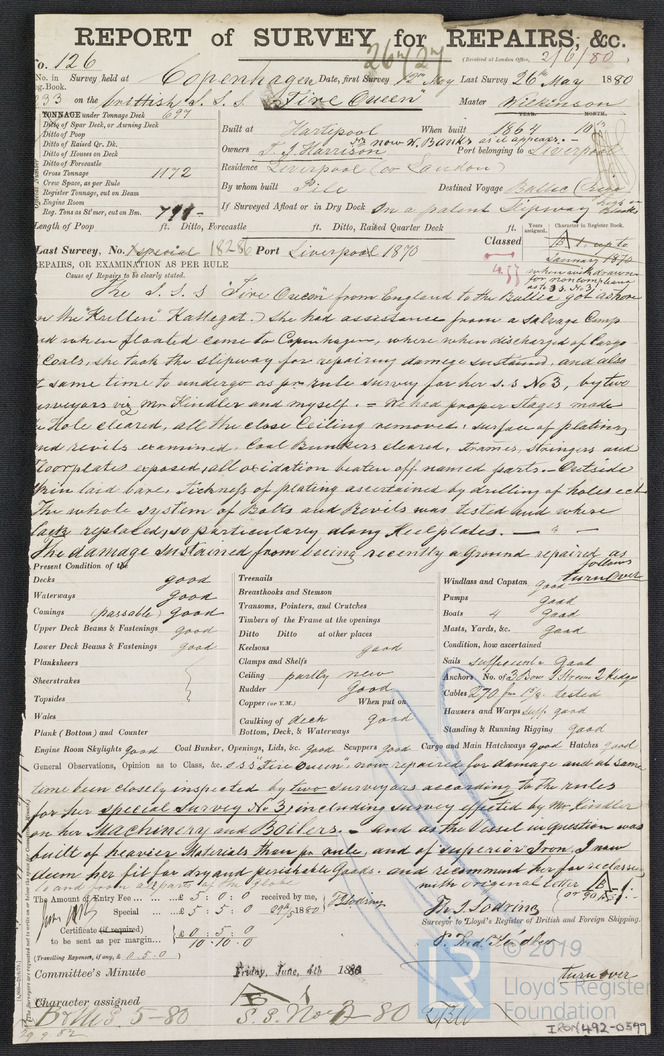 REPORT of SURVEY for REPAIRS, &c.
26/27
(Received at London Office, 2/6/80)
No. 126
No. in Survey held at Copenhagen Date, first Survey 12th May Last Survey 26th May 1880
Reg. Book.
233 on the brittish S. S. S. "Fire Queen" Master Wilkinson
TONNAGE under Tonnage Deck 697
Ditto of Spar Deck, or Awning Deck
Ditto of Poop
Ditto of Raised Qr. Dk.
Ditto of Houses on Deck
Ditto of Forecastle
Gross Tonnage 1172
Crew Space, as per Rule
Register Tonnage, cut on Beam
Engine Room
Reg. Tons as St'mer, cut on Bm. 791
YEAR. MONTH.
Built at Hartlepool When built 1864 10
Owners T. J. Harrison now W. Banks as it appears. Port belonging to Liverpool
Residence Liverpool (or London)
By whom built Pile Destined Voyage Baltic (Riga)
If Surveyed Afloat or in Dry Dock On a patent Slipway high on blocks
Length of Poop ft. Ditto, Forecastle ft. Ditto, Raised Quarter Deck ft.
Last Survey, No. special 18286 Port Liverpool 1870
Classed
Years assigned. Character in Register Book.
A 1. up to
January 1874
when withdrawn
for noncompliance
as to S S. No 3.
REPAIRS, OR EXAMINATION AS PER RULE
Cause of Repairs to be clearly stated.
The S. S. S "Fire Queen" from England to the Baltic got ashore
on the "Kullen" Kattegat.) she had assistance from a Salvage Comp
and when floated came to Copenhagen, where when discharged of Cargo
Coals, she took the slipway for repairing damage sustained, and also
at same time to undergo as pr rule survey for her s. s No 3, by two
surveyors viz Mr Kindler and myself. = We had proper stages made
the Hole cleared, all the close Ceiling removed, surface of plating
and revits examined, Coal Bunkers cleared, frames, Stringers and
Floorplates exposed, all oxidation beaten off named parts. - Outside
Skin laid bare, Tickness of plating ascertained by drilling of holes ect
The whole system of Bolts and Revils was tested and where
replaced, so particularly along Keelplates. —
The damage sustained from being recently a Ground repaired as
follows
turn over
Present Condition of the
Decks good
Waterways good
Comings (passable) good
Upper Deck Beams & Fastenings good
Lower Deck Beams & Fastenings good
Planksheers
Sheerstrakes
Topsides
Wales
Plank (Bottom) and Counter
Treenails
Breasthooks and Stemson
Transoms, Pointers, and Crutches
Timbers of the Frame at the openings
Ditto Ditto at other places
Keelsons good
Clamps and Shelfs
Ceiling partly new
Rudder Good
Copper (or Y.M.) When put on
Caulking of deck Good
Bottom, Deck, & Waterways
Windlass and Capstan good
Pumps good
Boats 4 Good
Masts, Yards, &c. good
Condition, how ascertained
Sails sufficient & Good
Anchors No. of 3 Bow 1 Stream 2 Kedge
Cables 270 fm 1 9/16 tested
Hawsers and Warps suff. good
Standing & Running Rigging good
Engine Room Skylights good Coal Bunker, Openings, Lids, &c. good Scuppers good Cargo and Main Hatchways good Hatches good
General Observations, Opinion as to Class, &c. S.S.S "Fire Queen", now repaired for damage and at same
time been closely inspected by two surveyors according to the rules
for her special Survey No 3, including survey effected by Mr Kindler
on her Machinery and Boilers. - and as the Vessel in question was
built of heavier Materials than pr rule, and of superior Iron, I now
deem her fit for dry and perishable Goods. and recommend her for reclassing
to and from all parts of the globe with original letter A
The Amount of Entry Fee ... £ 5 : 0 : 0 received by me,
Special ... £ 5 : 5 : 0 29/5 1880
Certificate (if required) £ 0 : 5 : 0
to be sent as per margin... 10 : 10 : 0
(Travelling Expenses, if any, £ 0.5.0 )
Surveyor to Lloyd's Register of British and Foreign Shipping.
Committee's Minute Friday, June, 4th 1880
turn over
Character assigned A 1
B & MS 5-80 S. S. No 3-80
© 2019
LR
Lloyd's Register
Foundation
IRON492-0399